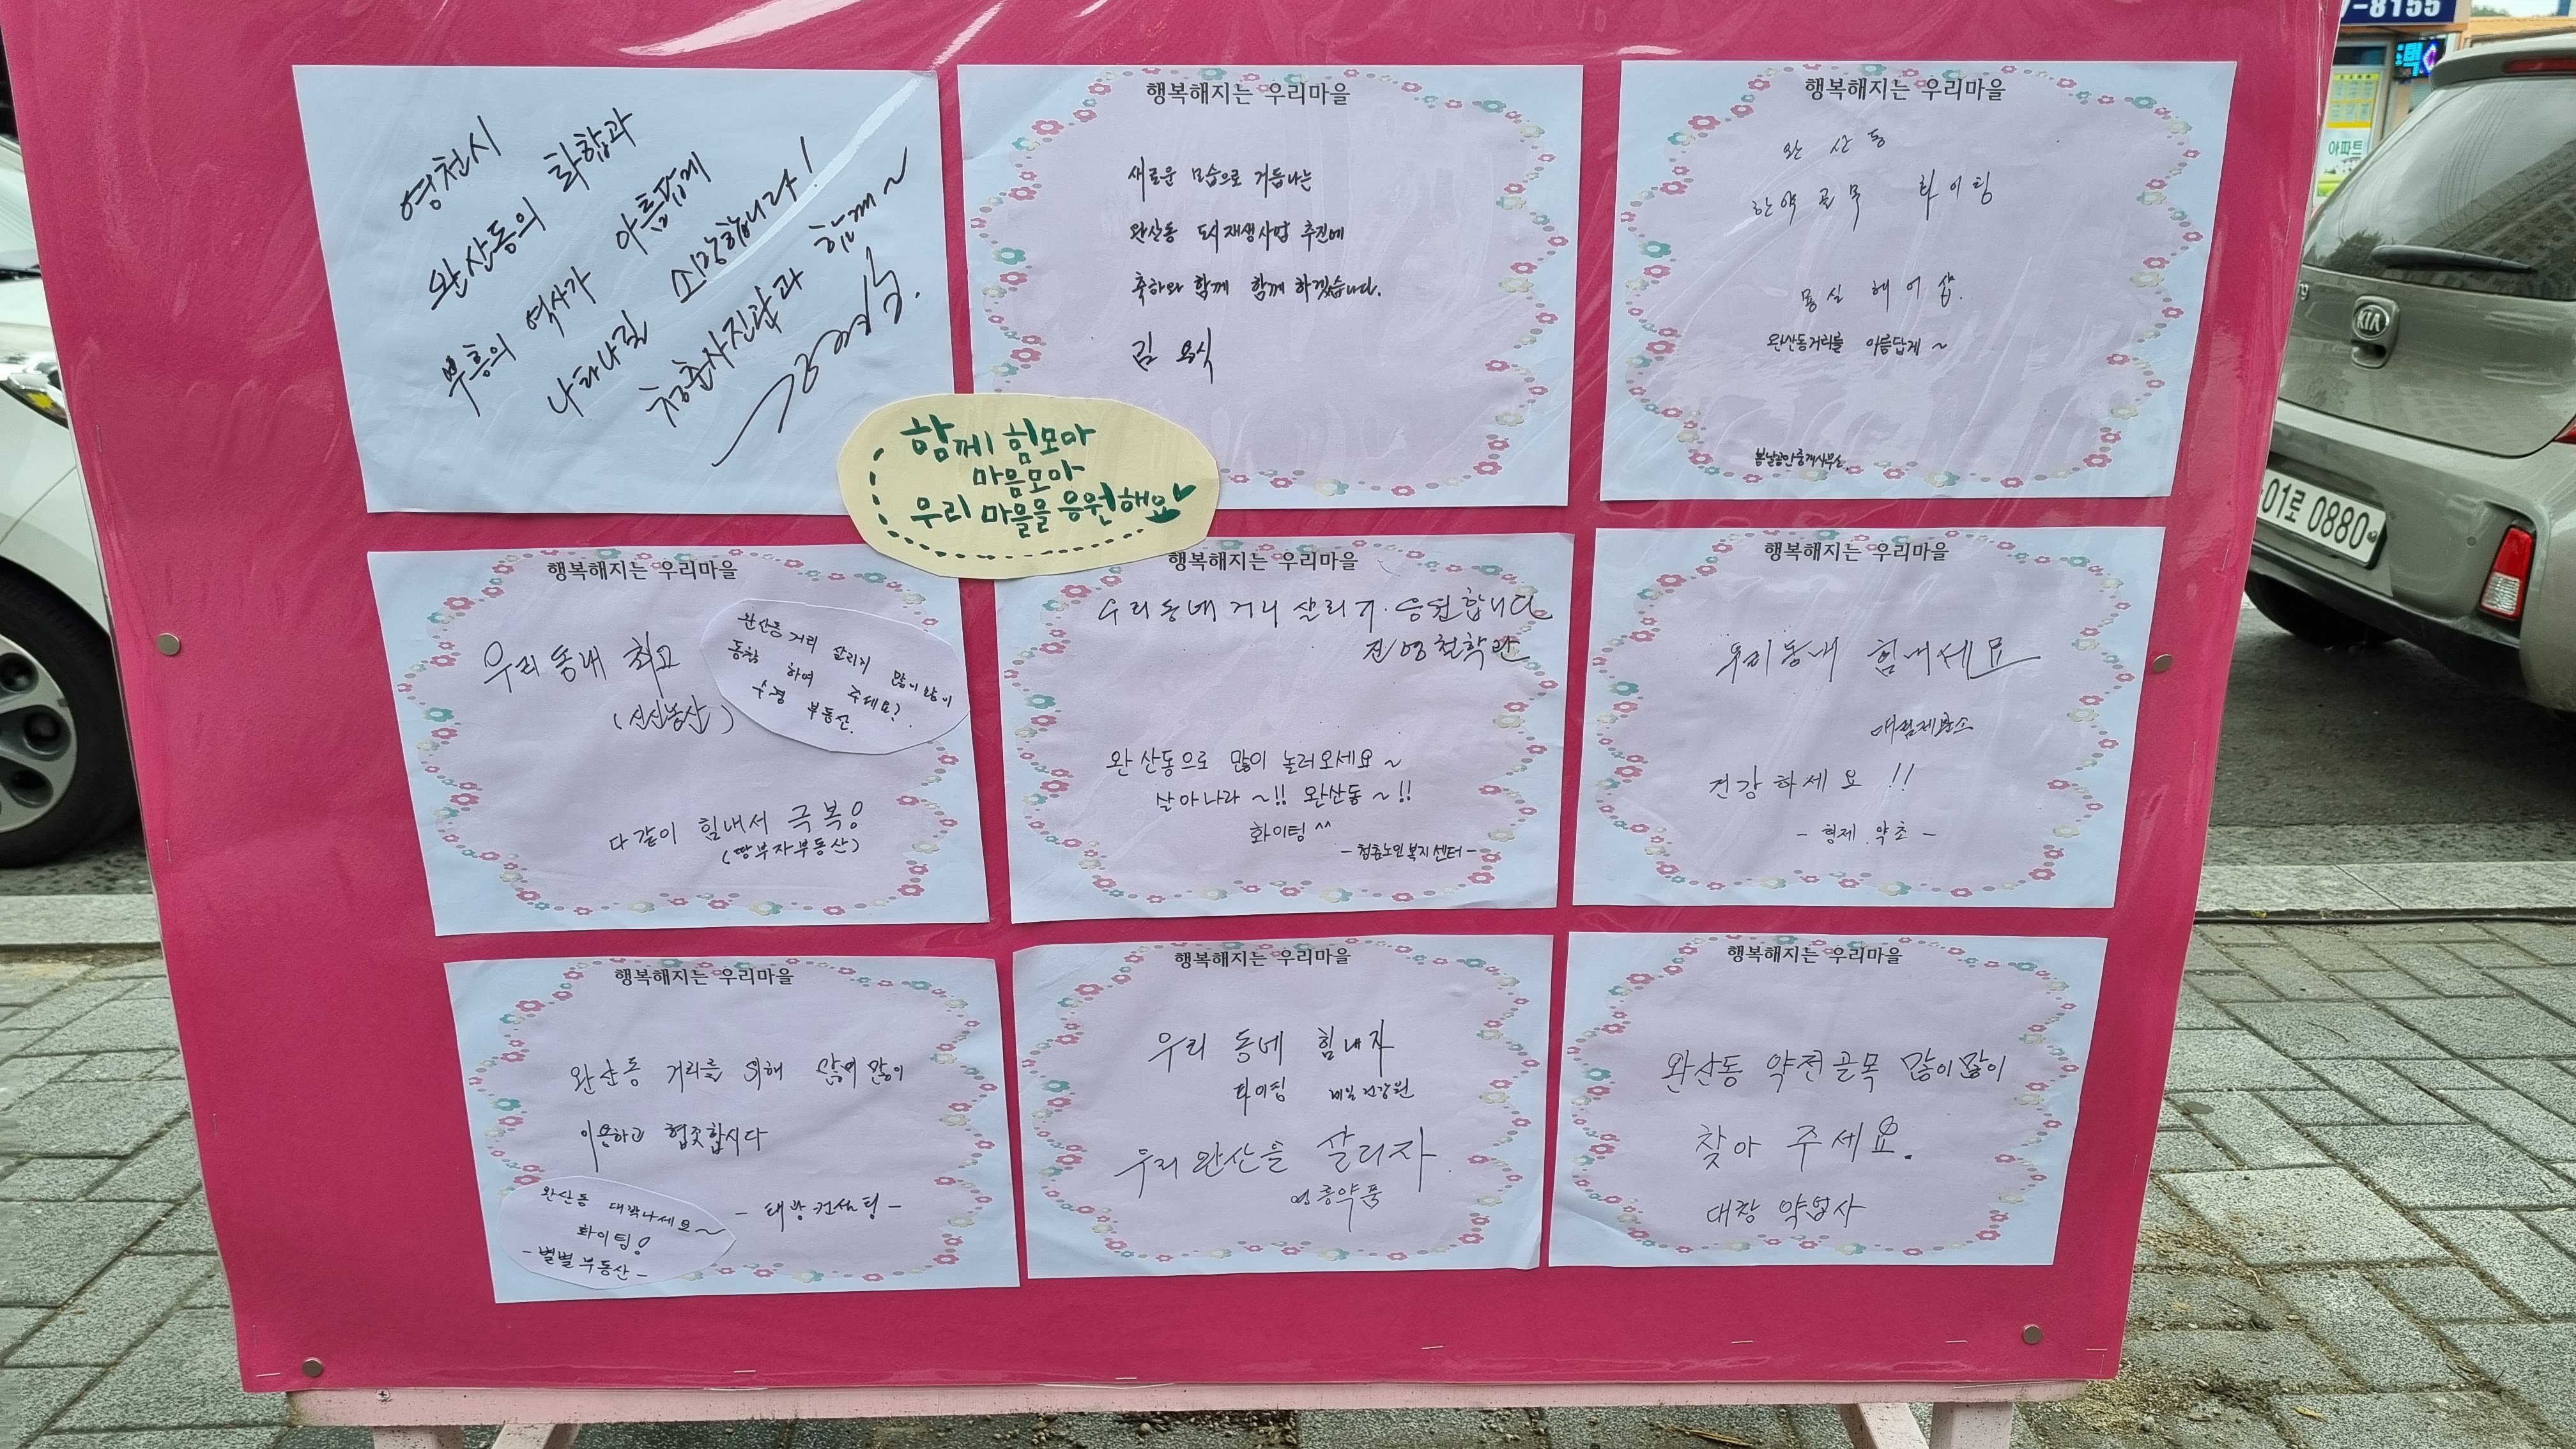 영천시
완산동의 화합과
부흥의 역사가 아름답게
나타나길 소망합니다!
청춘사진관과 함께~
행복해지는 우리마을
새로운 모습으로 거듭나는
완산동 도시재생사업 추진에
축하와 함께 함께 하겠습니다.
김 용식
행복해지는 우리마을
완산동
한약골목 화이팅
몽실 헤어샵.
완산동거리를 아름답게~
봄날공인중개사무소
함께 힘모아
마음모아
우리 마을을 응원해요
행복해지는 우리마을
우리동내 최고
(신신농산)
완산동 거리 살리기 많이많이
동참 하여 주세요?
수경 부동산.
다같이 힘내서 극복!
(땅부자부동산)
행복해지는 우리마을
우리동네거리 살리기. 응원합니다
진영철학관
완산동으로 많이 놀러오세요~
살아나라~!! 완산동~!!
화이팅^^
-청춘노인복지센터-
행복해지는 우리마을
우리동내 힘내세요
대림제분소
건강하세요!!
- 형제 약초 -
행복해지는 우리마을
완산동 거리를 위해 많이 많이
이용하고 협조합시다
- 태방컨설팅 -
완산동 대박나세요~
화이팅!
- 별별부동산 -
행복해지는 우리마을
우리 동네 힘내자
화이팅 제일건강원
우리 완산을 살리자.
영릉약품
행복해지는 우리마을
완산동 약전골목 많이많이
찾아 주세요.
대창 약업사
7-8155
아파트
KIA
01로 0880